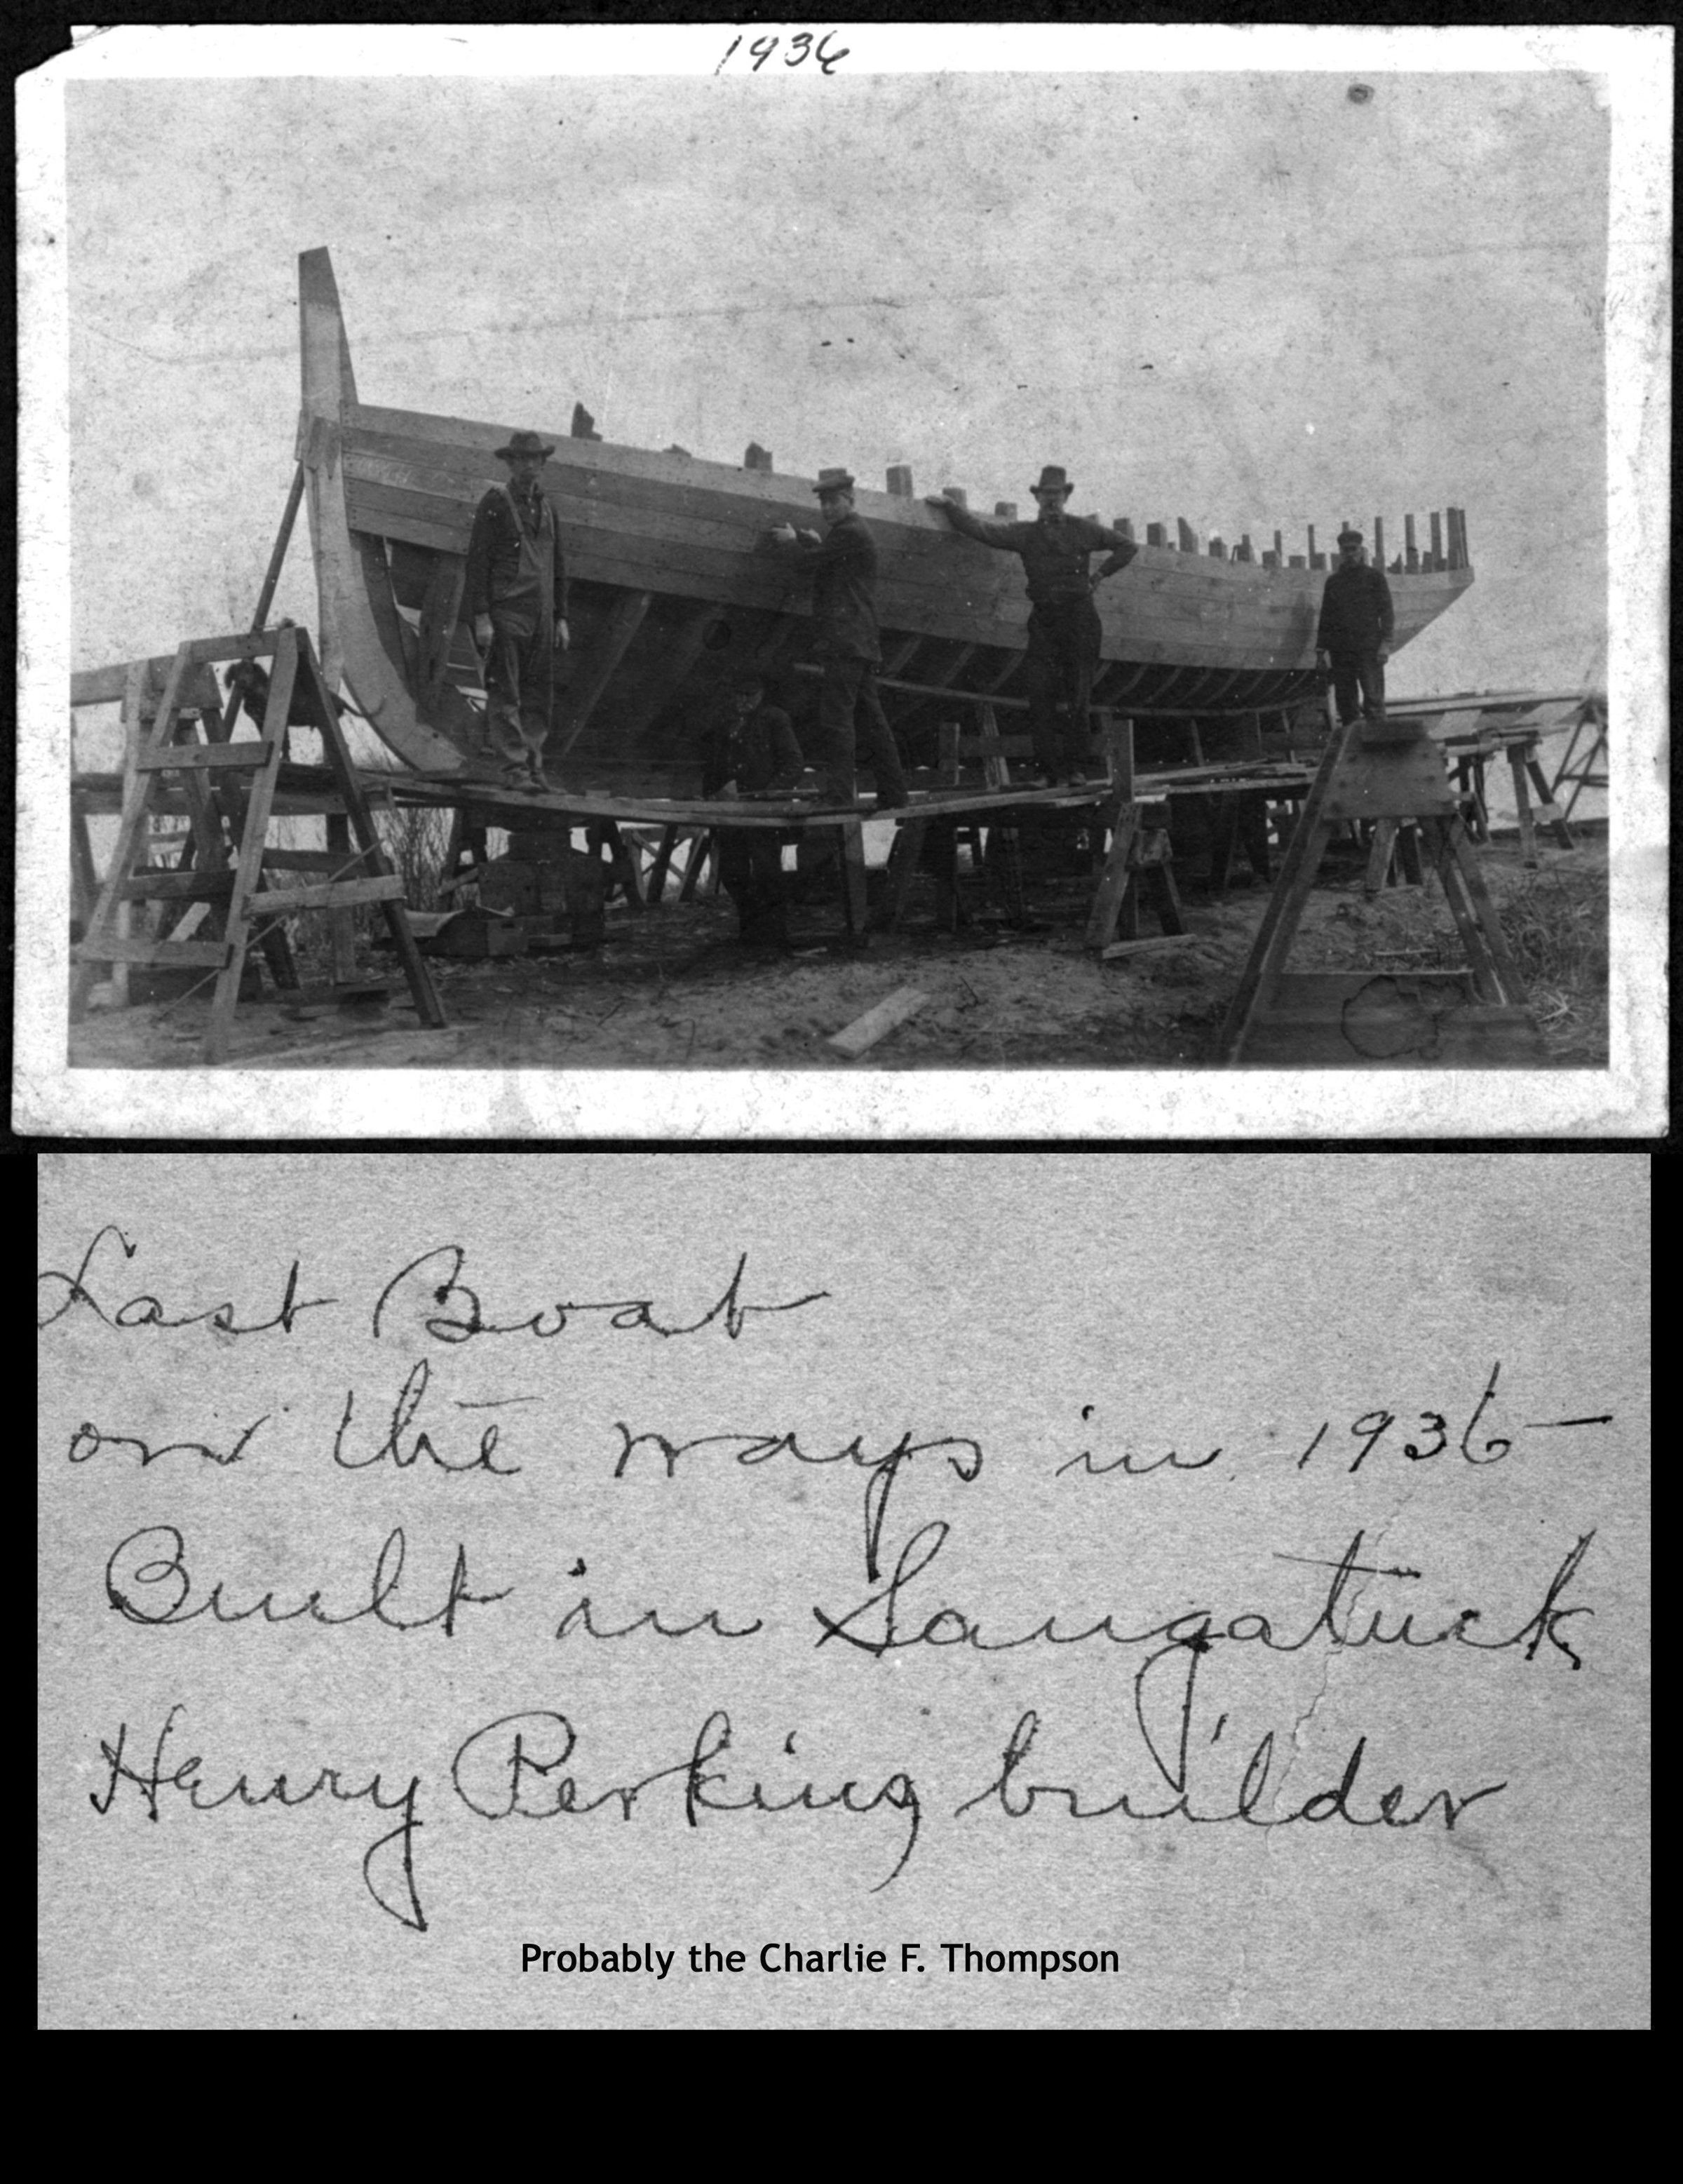 1936
Last Boat
on the ways in 1936 –
Built in Saugatuck
Henry Perkins builder
Probably the Charlie F. Thompson